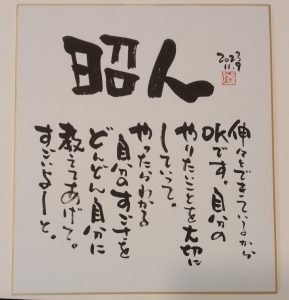 昭人
2023
11.9
伸々とできているから
OKです。自分の
やりたいことを大切に
していって。
やったらわかる
自分のすごさを
どんどん自分に
教えてあげて。
すごいよーと。